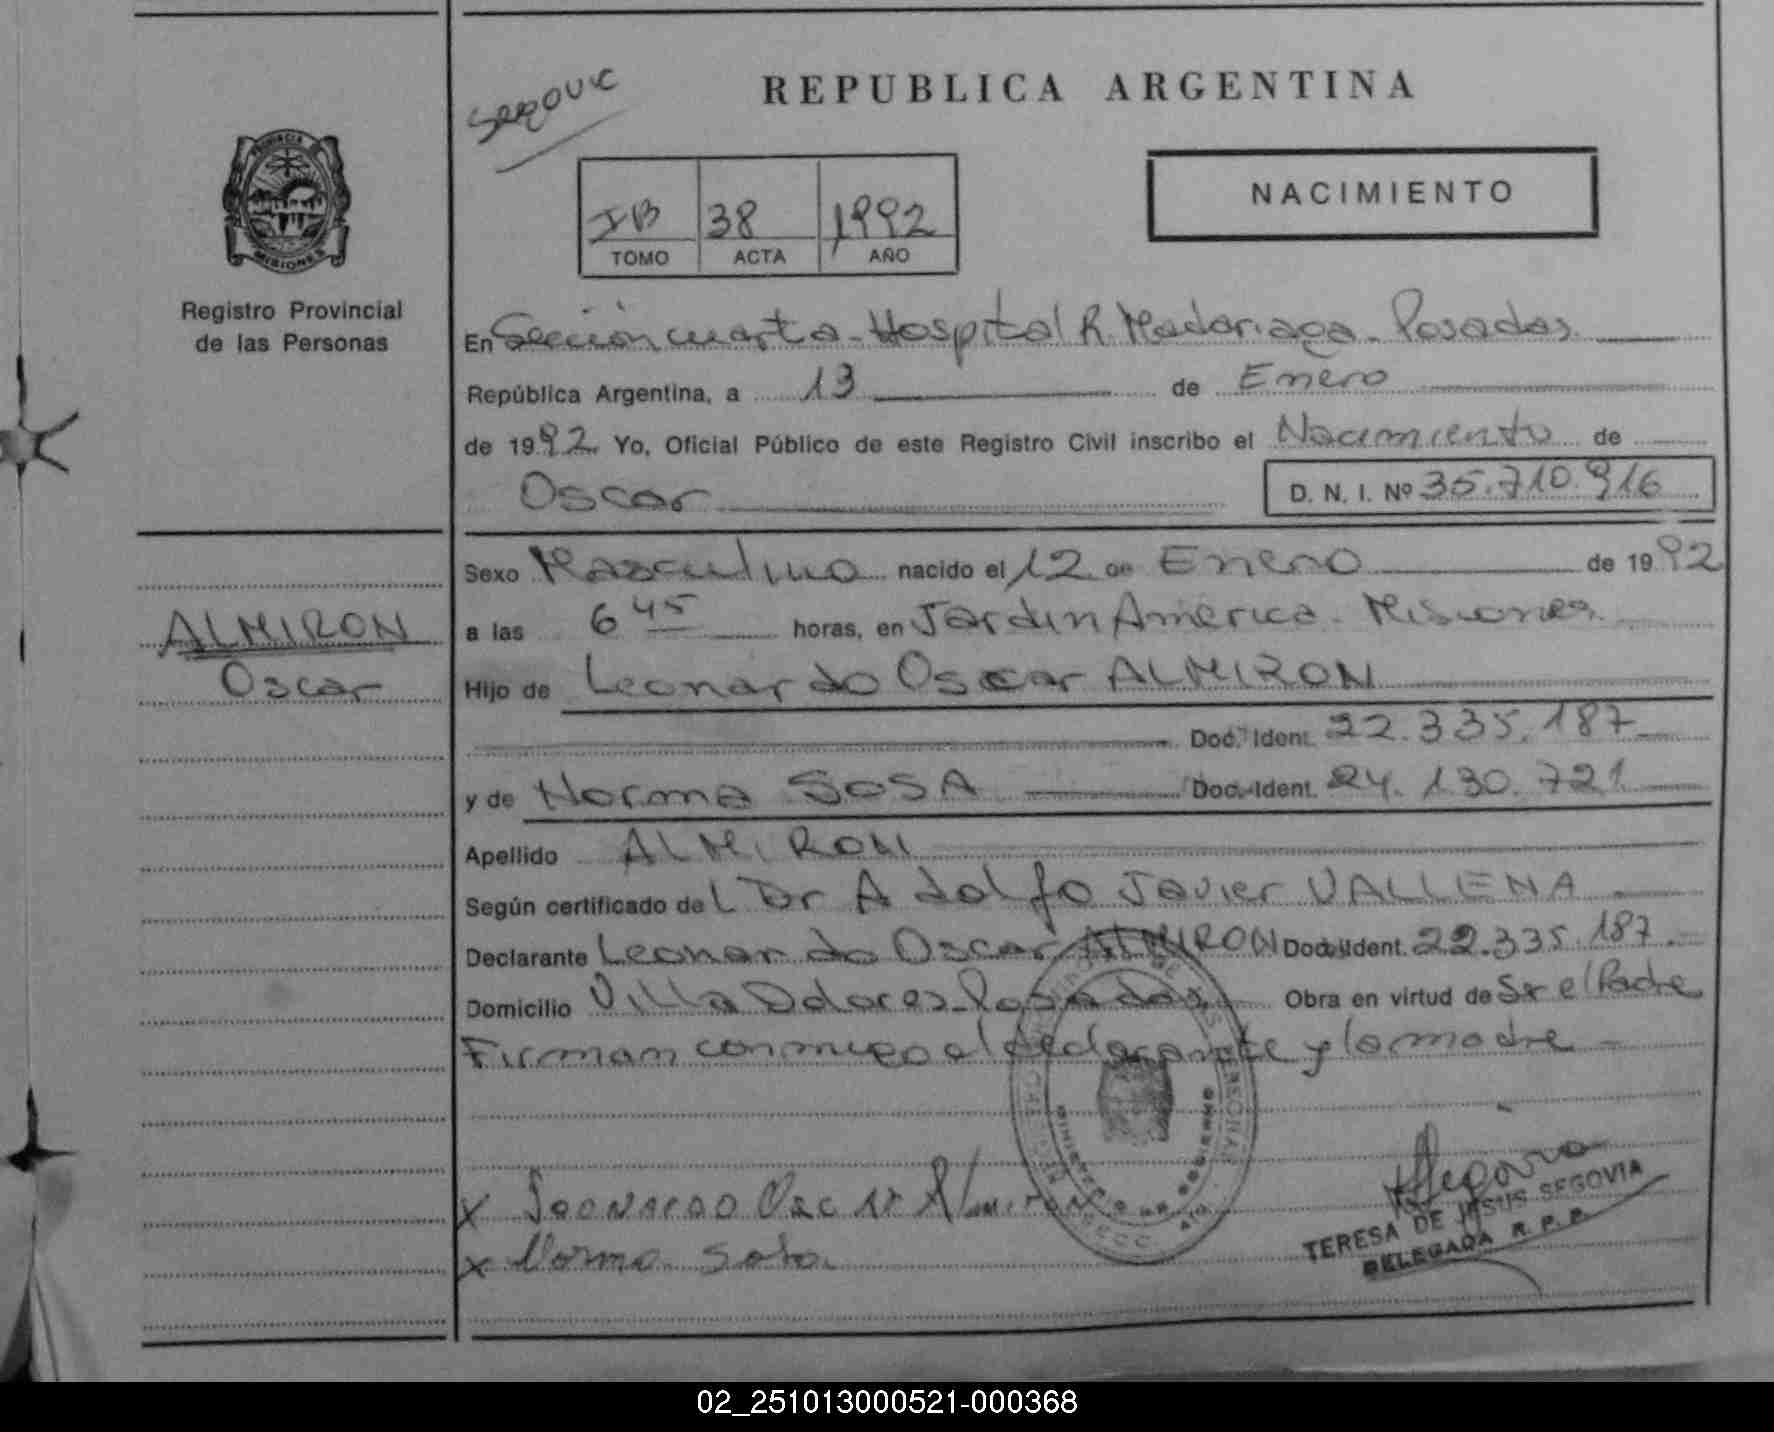 Segovia
REPUBLICA ARGENTINA
PROVINCIA
MISIONES
Registro Provincial
de las Personas
NACIMIENTO
IB 38 1992
TOMO ACTA AÑO
En Sección cuarta - Hospital R. Madariaga - Posadas
República Argentina, a 13 de Enero
de 1992 Yo, Oficial Público de este Registro Civil inscribo el Nacimiento de
Oscar D. N. I. Nº 35.710.916
Sexo Masculino nacido el 12 de Enero de 1992
ALMIRON
Oscar
a las 6 45 horas, en Jardin America - Misiones
Hijo de Leonardo Oscar ALMIRON
Doc. Ident. 22.335.187
y de Norma SOSA Doc. Ident. 24.130.721
Apellido ALMIRON
Según certificado del Dr Adolfo Javier VALLENA
Declarante Leonardo Oscar ALMIRON Doc. Ident. 22.335.187
Domicilio Villa Dolores - Posadas Obra en virtud de Ser el Padre
Firman conmigo el declarante y la madre
x Leonardo Oscar Almiron
x Norma Sosa
MINISTERIO DE GOBIERNO
Segovia
TERESA DE JESUS SEGOVIA
DELEGADA R. P. P.
02_251013000521-000368